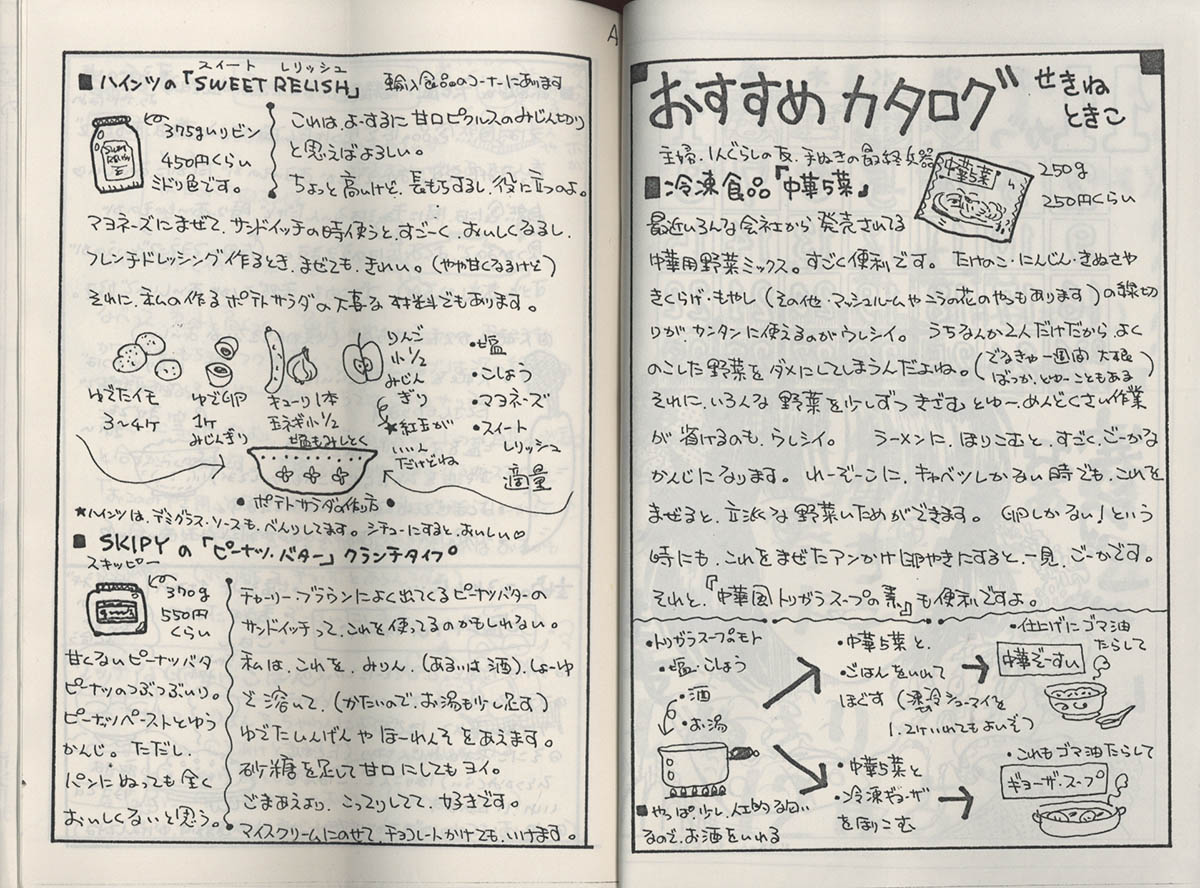 おすすめ カタログ
せきね
ときこ
主婦・1人ぐらしの友・手ぬきの最終兵器
■冷凍食品『中華5菜』
中華5菜
250g
250円くらい
最近いろんな会社から 発売されてる
中華用野菜ミックス。すごく便利です。たけのこ・にんじん・きぬさや
きくらげ・もやし(その他・マッシュルームやニラの花のやつもあります)の線切
りが、カンタンに使えるのがウレシイ。 うちなんか2人だけだから、よく
のこした野菜をダメにしてしまうんだよね。(でるきゃ一週間 大根
ばっか、とゆーこともある)
それに、いろんな野菜を少しずつきざむとゆー、めんどくさい作業
が省けるのも、ウレシイ。 ラーメンに、ほりこむと、すごく、ごーかな
かんじになります。 れーぞーこに、キャベツしかない時でも、これを
まぜると、立派な野菜いためができます。 卵しかない!という
時にも、これをまぜたアンかけ卵やきにすると、一見、ごーかです。
それと、『中華風トリガラスープの素』も便利ですよ。
・トリガラスープモト
・塩・こしょう
・酒
・お湯
■やっぱ、少し、人工的な匂い
なので、お酒をいれる
・中華5菜と、
・ごはんをいれて
ほぐす(冷凍シューマイを
1、2ケいれてもよいぞ)
・仕上げにゴマ油
たらして
中華ぞーすい
・中華5菜と
・冷凍ギョーザ
をほりこむ
・これもゴマ油たらして
ギョーザ・スープ
スイート レリッシュ
■ハインツの「SWEET RELISH」 輸入食品のコーナーにあります
SWEET
RELISH
375g入りビン
450円くらい
ミドリ色です。
これは、よーするに 甘口ピクルスのみじん切り
と思えばよろしい。
ちょっと高いけど、長もちするし、役に立つのよ。
マヨネーズにまぜて、サンドイッチの時使うと、すごーく、おいしくなるし、
フレンチドレッシング作るとき、まぜても、きれい。(やや甘くなるけど)
それに、私の作るポテトサラダの大事な材料でもあります。
ゆでたイモ
3〜4ケ
ゆで卵
1ケ
みじんぎり
キューリ1本
玉ネギ小1/2
塩もみしとく
りんご
小1/2
みじん
ぎり
★紅玉が
いいん
だけどね
・塩
・こしょう
・マヨネーズ
・スイート
レリッシュ
適量
・ポテトサラダの作り方・
★ハインツは、デミグラス・ソースも、べんりしてます。シチューにすると、おいしい♡
■SKIPYの「ピーナッツ・バター」クランチタイプ
スキッピー
370g
550円
くらい
甘くないピーナツバタ
ピーナツのつぶつぶいり。
ピーナッツペーストとゆう
かんじ。ただし、
パンにぬっても全く
おいしくないと思う。
チャーリー・ブラウンによく出てくるピーナツバターの
サンドイッチって、これを使ってるのかもしれない。
私は、これを、みりん、(あるいは酒)、しょーゆ
で溶いて、(かたいので、お湯も少し足す)
ゆでたいんげんやほーれんそをあえます。
砂糖を足して甘口にしてもヨイ。
ごまあえより、こってりしてて、好きです。
アイスクリームにのせて、チョコレートかけても、いけます。